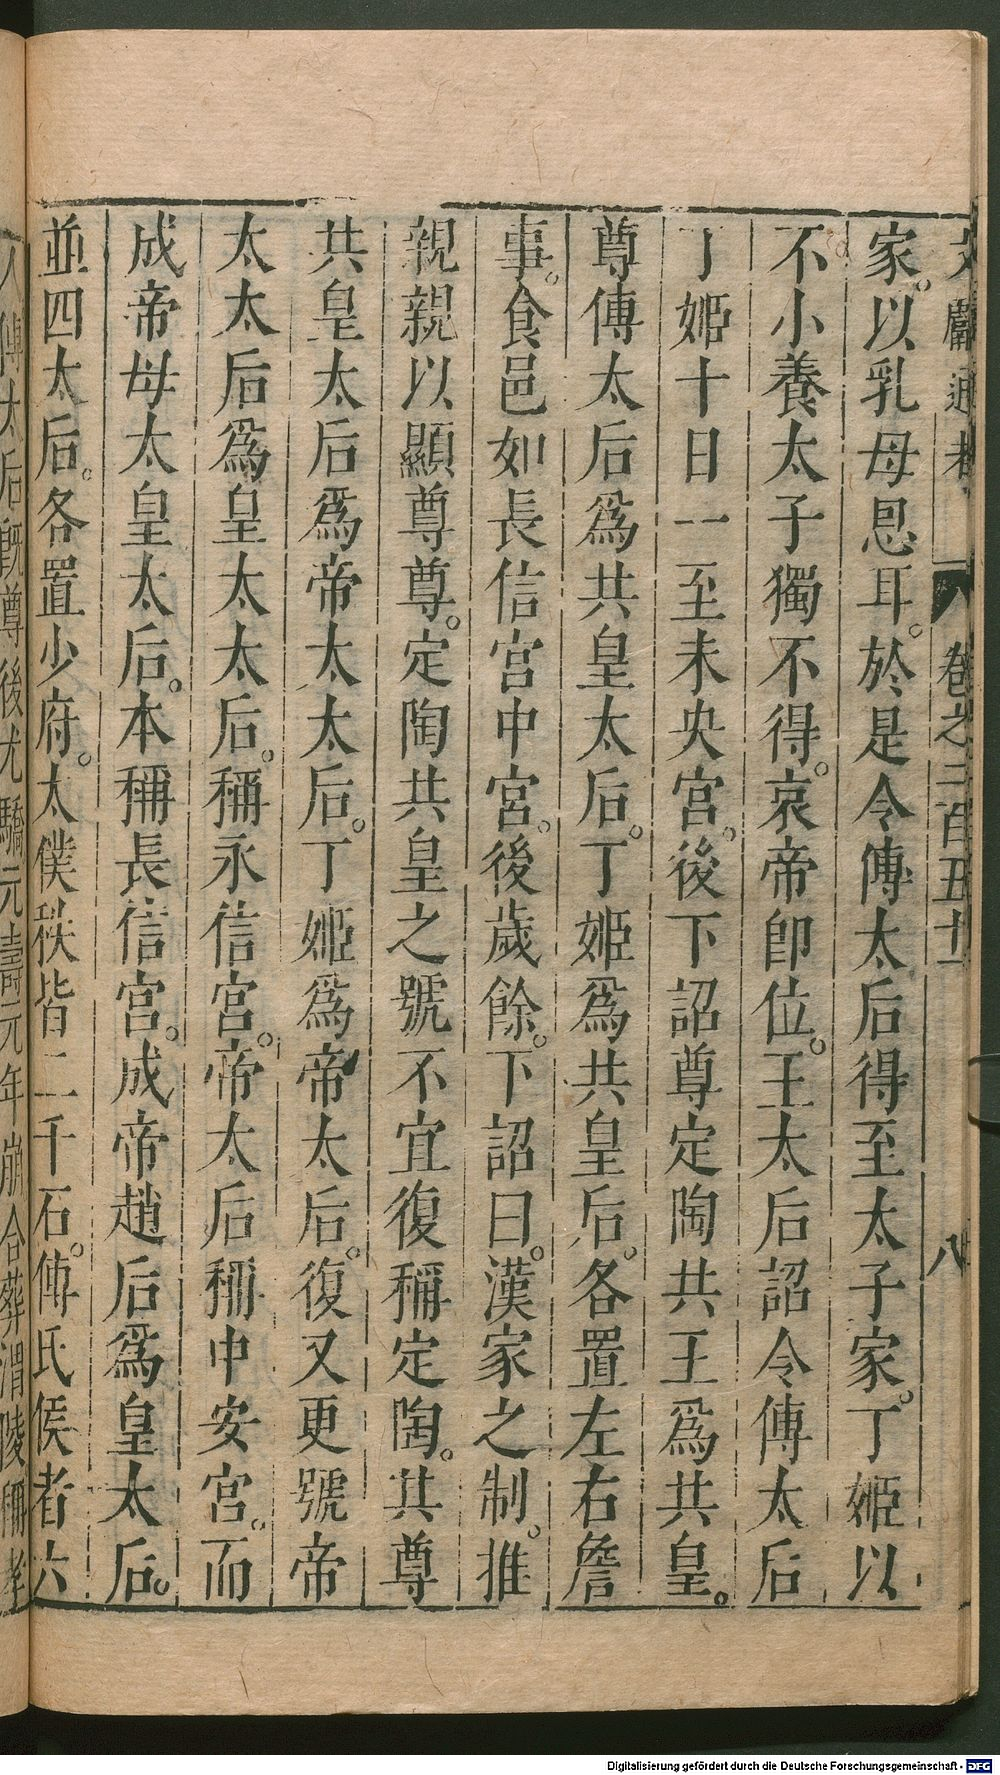 文獻通考 卷之二百五十一 八
家。以乳母恩耳。於是令傅太后得至太子家。丁姬以
不小養太子獨不得。哀帝卽位。王太后詔令傅太后
丁姬十日一至未央宮。後下詔尊定陶共王爲共皇。
尊傅太后爲共皇太后。丁姬爲共皇后。各置左右詹
事。食邑如長信宮中宮。後歲餘。下詔曰。漢家之制。推
親親以顯尊尊。定陶共皇之號不宜復稱定陶。其尊
共皇太后爲帝太太后。丁姬爲帝太后。復又更號帝
太太后爲皇太太后。稱永信宮。帝太后稱中安宮。而
成帝母太皇太后。本稱長信宮。成帝趙后爲皇太后。
並四太后。各置少府。太僕秩皆二千石。傅氏侯者六
人傅太后旣尊後尤驕元壽元年崩合葬渭陵稱孝
Digitalisierung gefördert durch die Deutsche Forschungsgemeinschaft - DFG